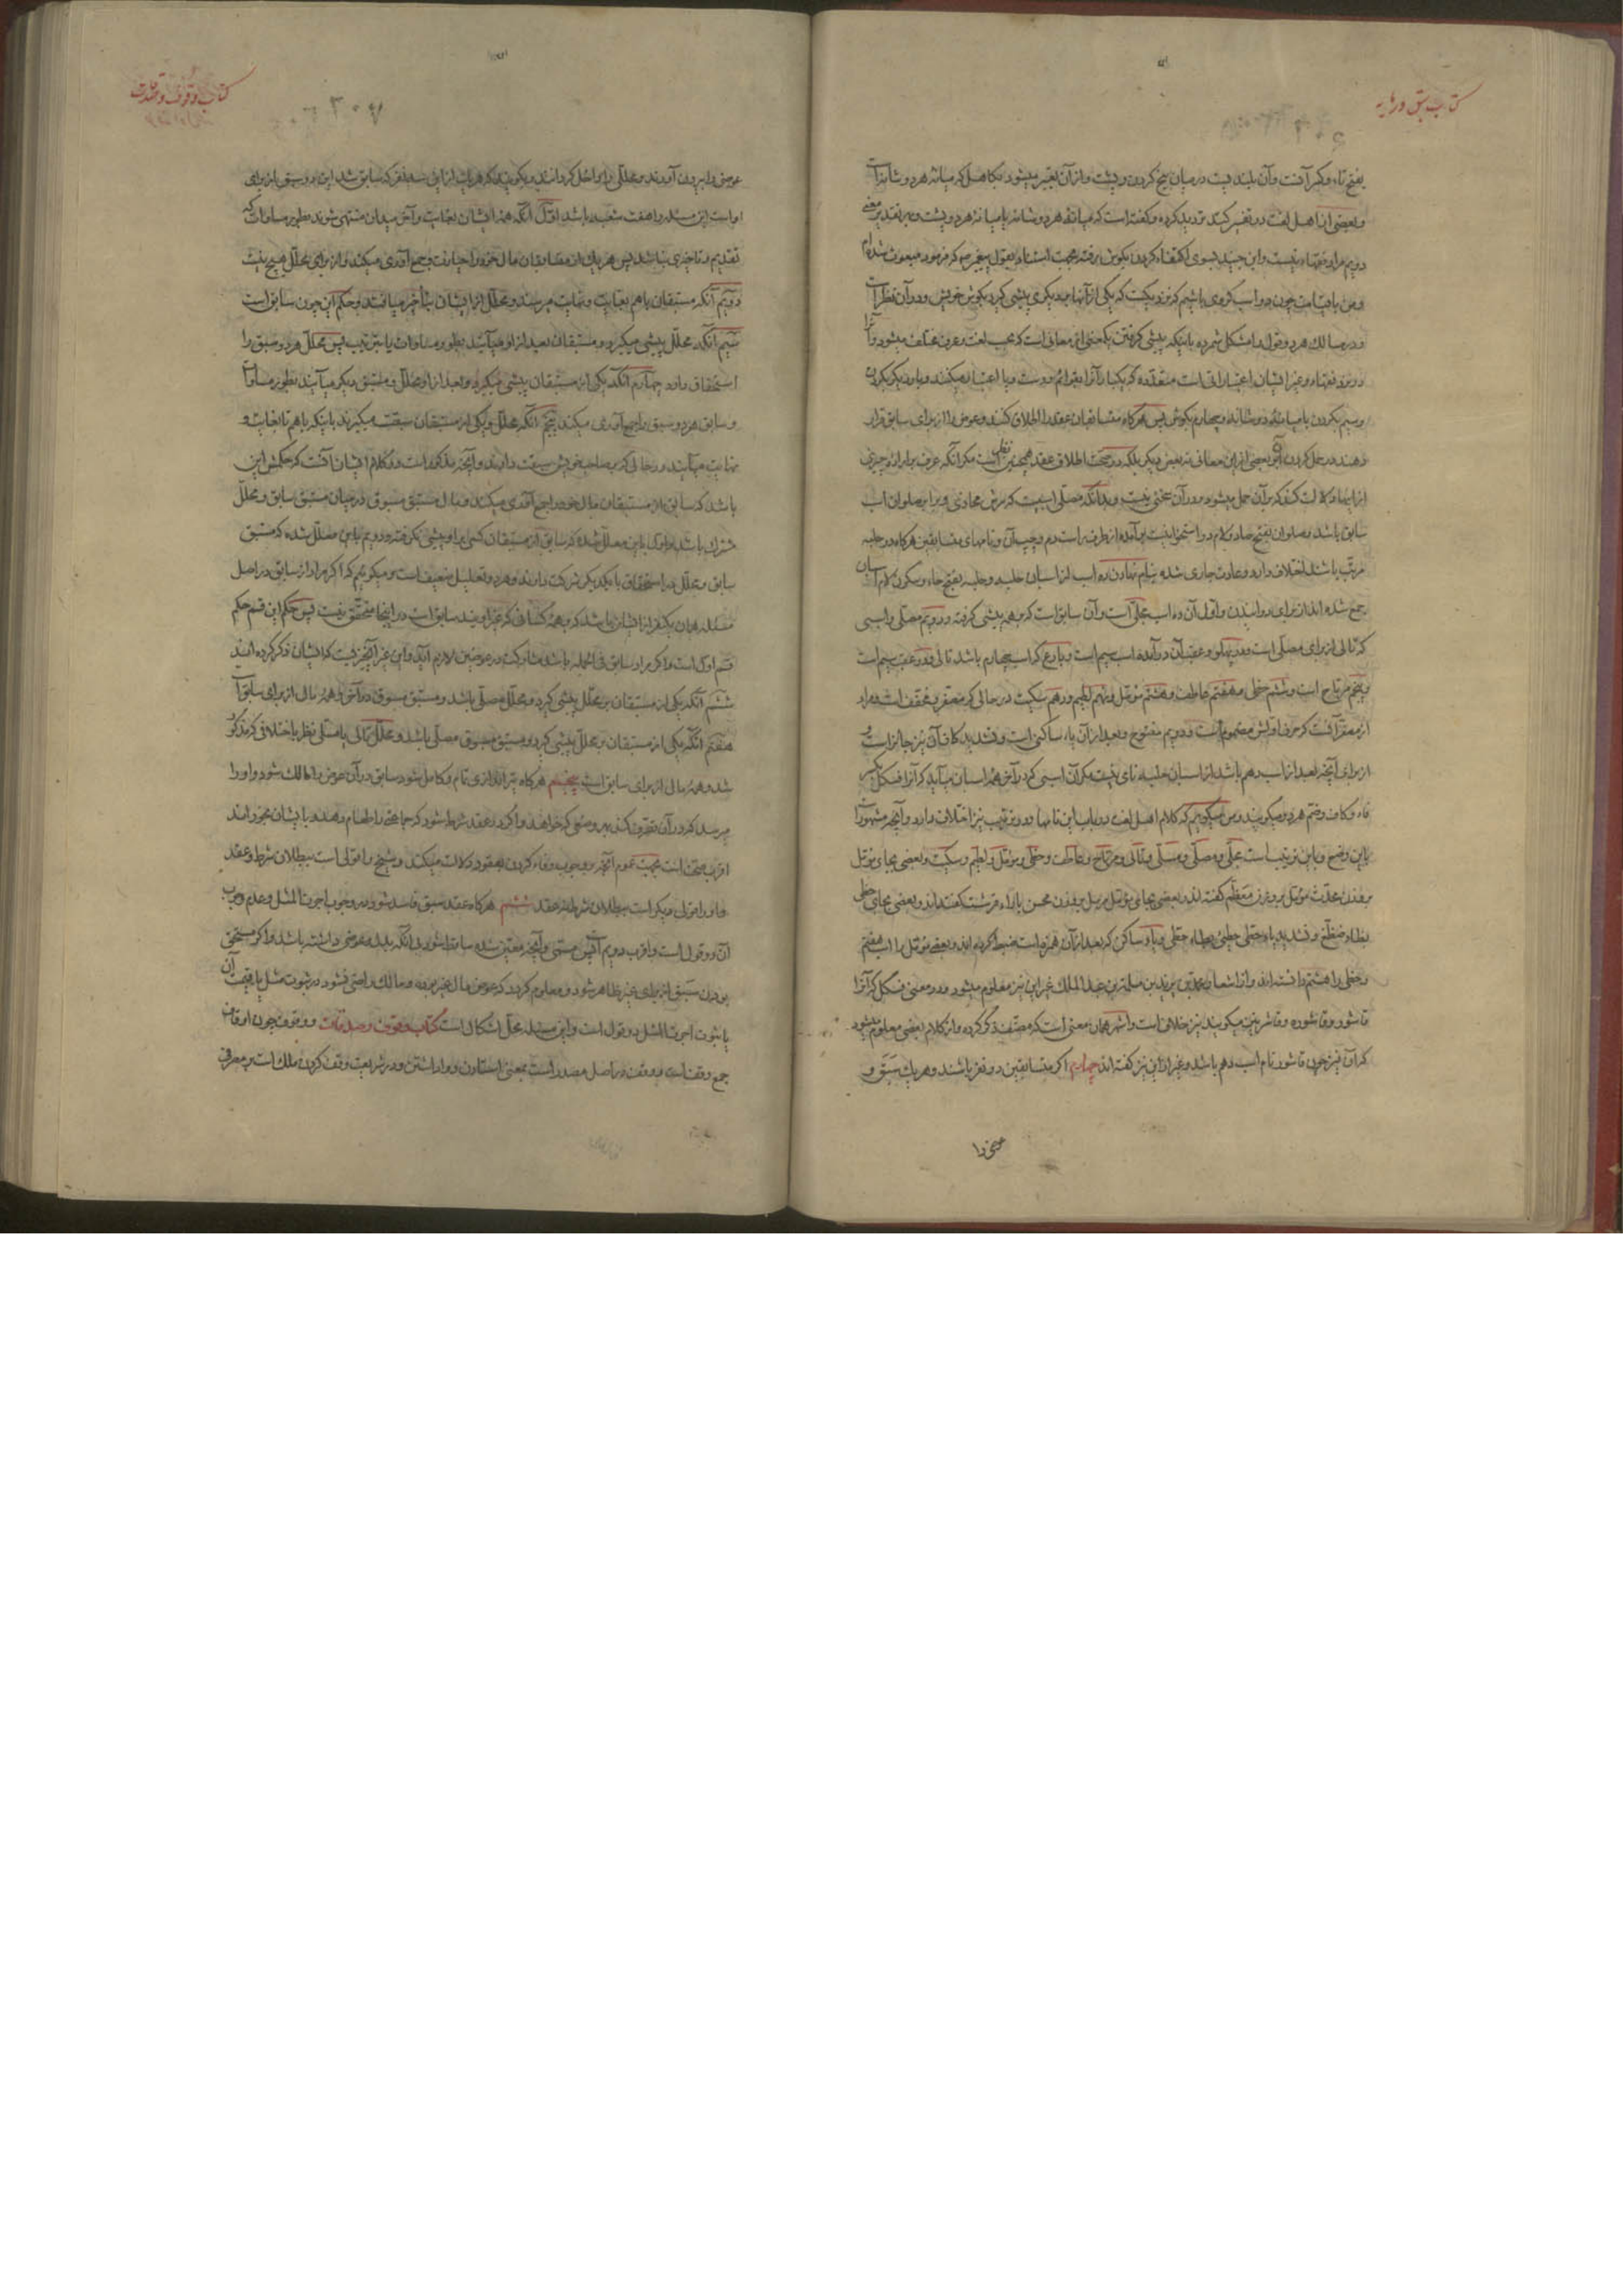 کتاب سبق و رمایه
بفتح تاء و کسر آنست و آن بلندیست در میان بیخ کردن و پشت و از آن تعبیر میشود بکاهل که میانهٔ هر دو شانه است
و بعضی از اهل لغت در تفسیر کتد تردید کرده و گفته است که میانهٔ هر دو شانه یا میانهٔ هر دو پشت و بر تقدیر معنی
دویم مراد فقهاء نیست و ابن جنید بسوی اکتفاء کردن بگوش رفته بجهت استناد بقول پیغمبر ص که فرمود مبعوث شده‌ام
و من با قیامت چون دو اسب گروی باشیم که نزدیکست که یکی از آنها بر دیگری پیشی گیرد بگوش خویش و در آن نظر است
و در مسالک هر دو قول را مشکل شمرده باینکه پیشی گرفتن یک معنی از معانی است که بحسب لغت و عرف مختلف میشود و آنرا
در نزد فقهاء و غیر ایشان اعتباراتی است متعدده که یکبار آنرا بقوائم دوست و پا اعتبار میکنند و بار دیگر بگردن
و سیم بگردن با میانهٔ دو شانه و چهارم بگوش پس هرگاه متسابقان عقد را اطلاق کنند و عوض را از برای سابق قرار
دهند در حمل کردن آن بر بعضی از این معانی نه بعض دیگر بلکه در صحت اطلاق عقد همچنین نظر است مگر آنکه عرف بر اراده چیزی
از اینها دلالت کند که بر آن حمل میشود و در آن بحثی نیست و بدانکه مصلّی اسبیست که سرش محاذی و برابر صلوان اسب
سابق باشد و صلوان بفتح صاد و لام دو استخوانیست برآمده از طرف راست دم و چپ آن و نامهای متسابقین هرگاه در حلبه
مرتب باشند اختلاف دارد و عادت جاری شده بنام نهادن ده اسب از اسبان حلبه و حلبه بفتح حاء و سکون لام اسبان
جمع شده‌اند از برای دوانیدن و اول آن ده اسب مجلّی است و آن سابق است که بر همه پیشی گرفته و دویم مصلّی و اسبی
که تالی از برای مصلّی است و در پهلو و عقب آن درآمده اسب سیم است و بارع که اسب چهارم باشد تالی و در عقب سیم است
و پنجم مرتاح است و ششم حظی و هفتم عاطف و هشتم مؤمّل و نهم لطیم و دهم سکیت در حالی که مصغر و مخفف است و مراد
از مصغر آنست که حرف اولش مضموم است و دویم مفتوح و بعد از آن یاء ساکنی است و تشدید کاف آن نیز جائز است و
از برای آنچه بعد از اسب دهم باشد از اسبان حلبه نامی نیست مگر آن اسبی که در آخر همه اسبان میآید که آنرا فسکل بکسر
فاء و کاف و ضم هر دو میگویند و من میگویم که کلام اهل لغت در باب این نامها و در ترتیب نیز اختلاف دارد و آنچه مشهور است
باین وضع و باین ترتیب است مجلّی و مصلّی و مسلّی و تالی و مرتاح و عاطف و حظی و مؤمّل و لطیم و سکیت و بعضی بجای مؤمل
بر وزن محدث مؤمل بر وزن معظّم گفته‌اند و بعضی بجای مؤمل مرمل بر وزن محسن با راء قرشت گفته‌اند و بعضی بجای حظی
و حظی را هشتم دانسته‌اند و از اشعار محمد بن یزید بن مسلمة بن عبدالملک غیر این نیز مفهوم میشود و در معنی فسکل که آنرا
قاشور و قاشوره و قاشر نیز میگویند نیز خلاف است و اشهر همان معنی است که مصنف ذکر کرده و از کلام بعضی معلوم میشود
که آن نیز چون قاشور نام اسب دهم باشد و غیر از این نیز گفته‌اند چهارم اگر متسابقین دو نفر باشند و هر یک سَبَق و
کتاب وقوف و صدقات
عوض را بیرون آوردند و محللی را داخل گردانند و بگویند که هر یک از این سه نفر که سابق شد این دو سبق از برای
اواست این مسئله را هفت شعبه باشد اول آنکه همه ایشان بغایت و آخر میدان منتهی شوند بطور مساوات که
تقدیم و تاخیری نباشد پس هر یک از متسابقان مال خود را حیازت و جمع آوری میکند و از برای محلل هیچ نیست
دویم آنکه مستبقان با هم بغایت و نهایت میرسند و محلل از ایشان بتأخیر میافتد و حکم این چون سابق است
سیم آنکه محلل پیشی میگیرد و مستبقان بعد از او میآیند بطور مساوات یا بترتیب پس محلل هر دو سبق را
استحقاق دارد چهارم آنکه یکی از مستبقان پیشی میگیرد و بعد از او محلل و مستبق دیگر میآیند بطور مساوات
و سابق هر دو سبق را جمع آوری میکند پنجم آنکه محلل و یکی از مستبقان سبقت میگیرند باینکه با هم تا بغایت و
نهایت میآیند در حالی که بر صاحب خویش سبقت دارند و آنچه مذکور است در کلام ایشان آنست که حکمش این
باشد که سابق از مستبقان مال خود را جمع آوری میکند و مال مستبق مسبوق در میان مستبق سابق و محلل
مشترک باشد و اول باین معلل شده که سابق از مستبقان کسی بر او پیشی نگرفته و دویم باین معلل شده که مستبق
سابق و محلل در استحقاق با یکدیگر شرکت دارند و هر دو تعلیل ضعیف است و میگویم که اگر مراد از سابق در اصل
مسئله همان یکنفر از ایشان باشد که بر همه کسانی که غیر اویند سابق است در اینجا متحقق نیست پس حکم این قسم حکم
قسم اول است و اگر مراد سابق فی الجمله باشد مشارکت در عوضین لازم آید و این غیر آنچیزیست که ایشان ذکر کرده‌اند
ششم آنکه یکی از مستبقان بر محلل پیشی گیرد و محلل مصلّی باشد و مستبق مسبوق در آخر و همه مال از برای سابق است
هفتم آنکه یکی از مستبقان بر محلل پیشی گیرد و مستبق مسبوق مصلّی باشد و محلل تالی یا مسلّی نظر باختلافی که مذکور
شد و همه مال از برای سابق است پنجم هرگاه تیراندازی تام و کامل شود سابق در آن عوض را مالک شود و او را
میرسد که در آن تصرف کند بهر وضعی که خواهد و اگر در عقد شرط شود که جماعتی را طعام دهند و بایشان بخورانند
اقرب صحت است بجهت عموم آنچه بر وجوب وفاء کردن بعقود دلالت میکند و شیخ را قولی است ببطلان شرط و عقد
و او را قولی دیگر است ببطلان شرط نه عقد ششم هرگاه عقد سبق فاسد شود در وجوب اجرت المثل و عدم وجوب
آن دو قول است و اقرب دویم است پس مسمّی و آنچه معیّن شده ساقط شود
بودن سَبَق از برای غیر ظاهر شود و معلوم گردد که عوض مال غیر بوده و مالک راضی نشود در ثبوت مثل یا قیمت آن
یا ثبوت اجرت المثل دو قول است و این مسئله محلّ اشکال است کتاب وقوف و صدقات و وقوف چون اوقاف
جمع وقف است و وقف در اصل مصدر است بمعنی ایستادن و واداشتن و در شریعت وقف کردن ملک است بر مصرفی